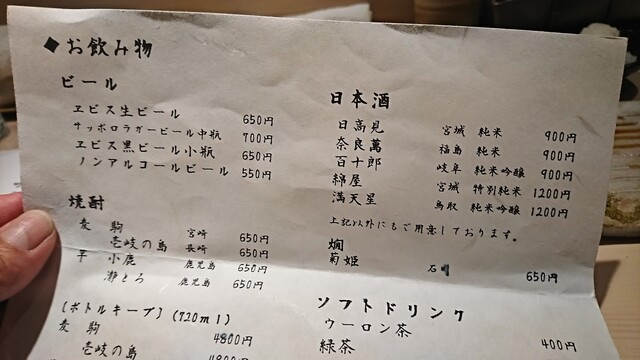 ◆お飲み物
ビール
ヱビス生ビール 650円
サッポロラガービール中瓶 700円
ヱビス黒ビール小瓶 650円
ノンアルコールビール 550円
焼酎
麦 駒 宮崎 650円
壱岐の島 長崎 650円
芋 小鹿 鹿児島 650円
灘とろ 鹿児島 650円
(ボトルキープ) (720ml)
麦 駒 4800円
壱岐の島 4800円
日本酒
日高見 宮城 純米 900円
奈良萬 福島 純米 900円
百十郎 岐阜 純米吟醸 900円
綿屋 宮城 特別純米 1200円
満天星 鳥取 純米吟醸 1200円
上記以外にもご用意しております。
燗
菊姫 石川 650円
ソフトドリンク
ウーロン茶
緑茶 400円